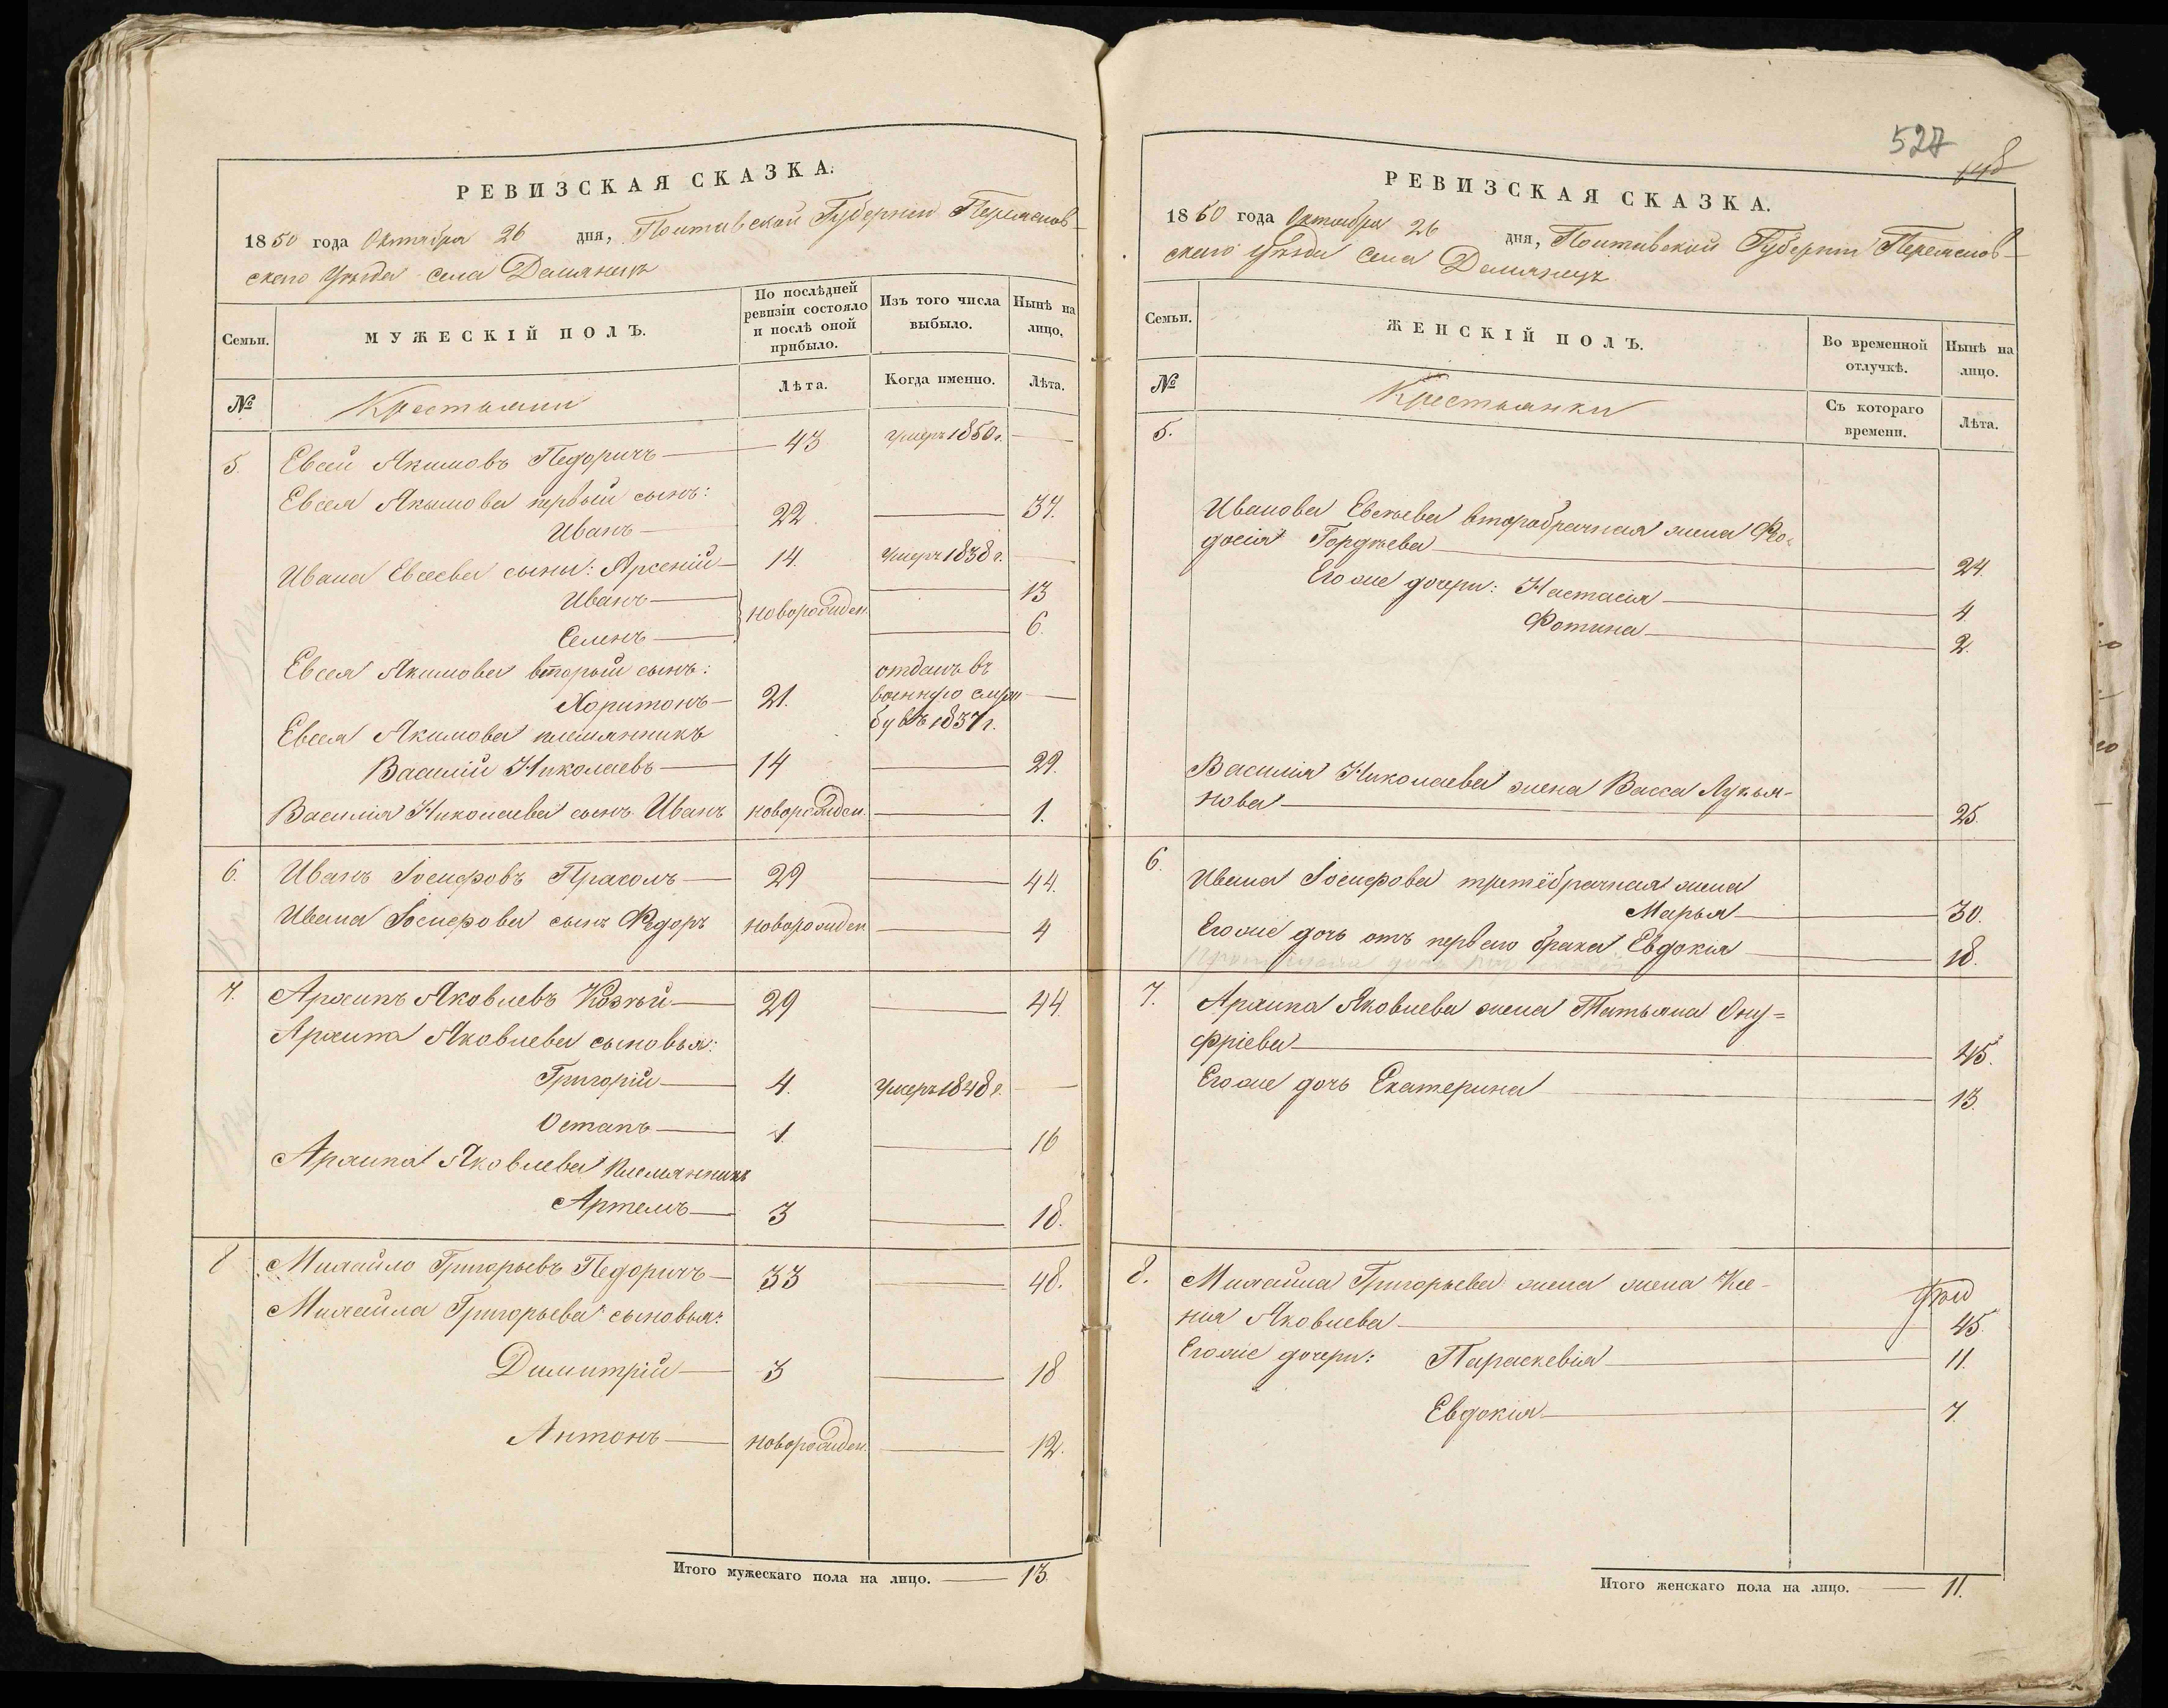 РЕВИЗСКАЯ СКАЗКА.
1850 года Октября 26 дня, Полтавской Губернии Переяслов-
скаго Уезда села Демянецъ
Семьи. МУЖЕСКІЙ ПОЛЪ. По послѣдней ревизіи состояло и послѣ оной прибыло. Изъ того числа выбыло. Нынѣ на лицо.
№ Крестьяни Лѣта. Когда именно. Лѣта.
5. Евсей Якимовъ Педоричъ 43 умеръ 1850 г.
Евсея Якимова первый сынъ:
Иванъ 22 37.
Ивана Евсеева сыны: Арсеній 14. умеръ 1838 г.
Иванъ новорожден. 13
Семенъ 6.
Евсея Якимова вторый сынъ: отданъ въ
Харитонъ 21. военную служ
бу въ 1837 г.
Евсея Якимова племянникъ
Василій Николаевъ 14 29.
Василія Николаева сынъ Иванъ новорожден. 1.
6. Иванъ Іосифовъ 29 44.
Ивана Іосифова сынъ Федоръ новорожден 4
7. Архипъ Яковлевъ Козѣй 29 44
Архипа Яковлева сыновья:
Григорій 4. умеръ 1848 г.
Остапъ 1. 16
Архипа Яковлева племянникъ
Артемъ 3 18.
8 Михайло Григорьевъ Педоричъ 33 48.
Михайла Григорьева сыновья:
Димитрій 3 18
Антонъ новорожден. 12.
Итого мужескаго пола на лицо. 13.
527
148
РЕВИЗСКАЯ СКАЗКА.
1850 года Октября 26 дня, Полтавской Губерніи Переяслов-
скаго Уезда села Демянецъ
Семьи. ЖЕНСКІЙ ПОЛЪ. Во временной отлучкѣ. Нынѣ на лицо.
№ Крестьянки Съ котораго времени. Лѣта.
5.
Иванова Евсеева второбрачная жена Фео-
досія Гордѣева 24.
Его же дочери: Настасія 4.
Фотина 2.
Василія Николаева жена Васса Лукья-
нова 25.
6. Ивана Іосифова третёбрачная жена
Марья 30.
Его же дочь отъ перваго брака Евдокія 18.
7. Архипа Яковлева жена Татьяна Ону=
фріева 45.
Его же дочь Екатерина 13.
8. Михайла Григорьева жена жена Ксе-
нія Яковлева 45.
Его же дочери: Параскевія 11.
Евдокія 7.
Итого женскаго пола на лицо. 11.